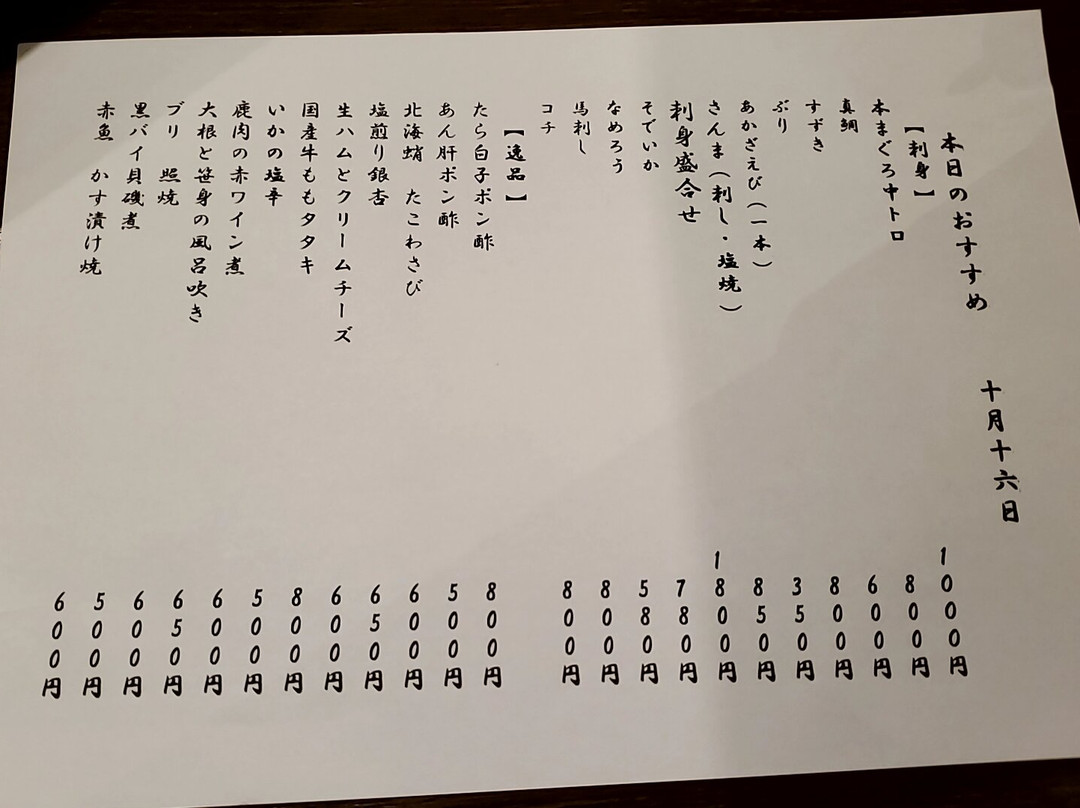 本日のおすすめ　十月十六日
【刺身】
本まぐろ中トロ　1000円
真鯛　800円
すずき　600円
ぶり　800円
あかざえび（一本）　350円
さんま（刺し・塩焼）　850円
刺身盛合せ　1800円
そでいか　780円
なめろう　580円
馬刺し　800円
コチ　800円
【逸品】
たら白子ポン酢　800円
あん肝ポン酢　500円
北海蛸　たこわさび　600円
塩煎り銀杏　650円
生ハムとクリームチーズ　600円
国産牛ももタタキ　800円
いかの塩辛　500円
鹿肉の赤ワイン煮　600円
大根と笹身の風呂吹き　650円
ブリ　照焼　600円
黒バイ貝磯煮　500円
赤魚　かす漬け焼　600円